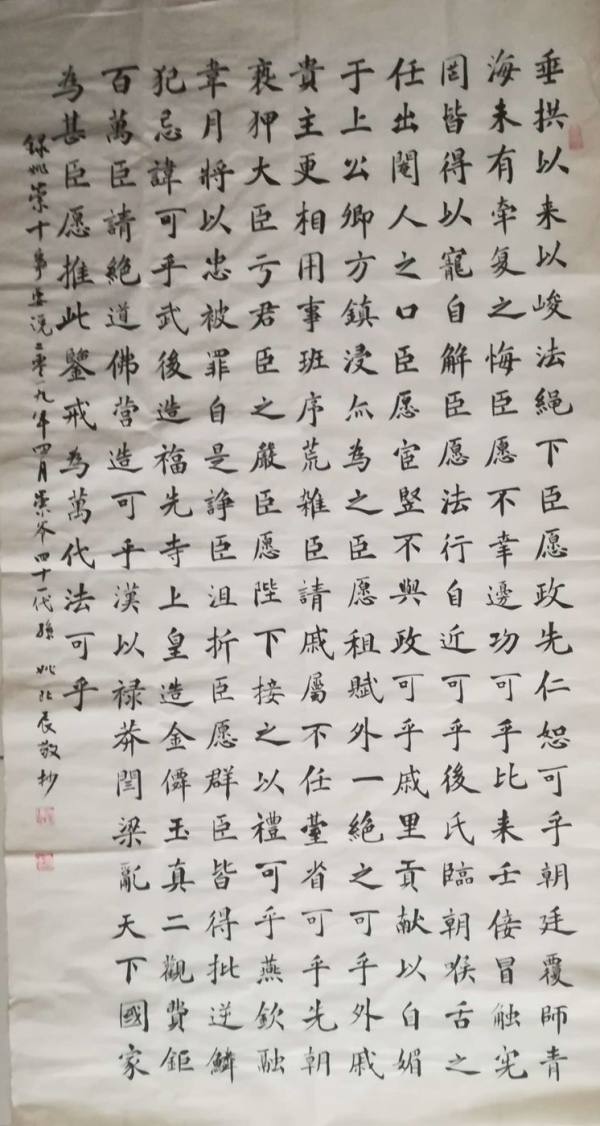 垂拱以来以峻法繩下臣愿政先仁恕可乎朝廷覆師青
海未有牵复之悔臣愿不幸邊功可乎比来壬佞冒触宪
罔皆得以寵自解臣愿法行自近可乎後氏臨朝喉舌之
任出閹人之口臣愿宦竖不與政可乎戚里貢献以自媚
于上公卿方鎮浸亦為之臣愿租賦外一絶之可乎外戚
貴主更相用事班序荒雜臣請戚屬不任臺省可乎先朝
亵狎大臣亏君臣之嚴臣愿陛下接之以禮可乎燕欽融
韋月將以忠被罪自是諍臣沮折臣愿群臣皆得批逆鱗
犯忌諱可乎武後造福先寺上皇造金僊玉真二觀費鉅
百萬臣請絶道佛營造可乎漢以禄莽閻梁亂天下國家
為甚臣愿推此鑒戒為萬代法可乎
録姚崇十事要说二零一九年四月崇公四十一代孫 姚北辰敬抄